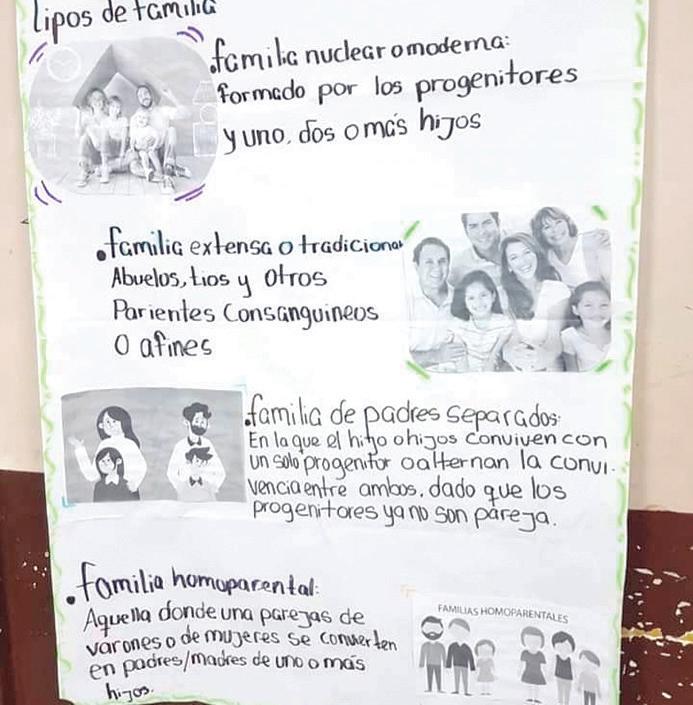 Tipos de familia
.familia nuclear o moderna:
formado por los progenitores
y uno, dos o más hijos
.familia extensa o tradicional
Abuelos, tios y otros
Parientes Consanguineos
O afines
.familia de padres separados:
En la que el hijo o hijos conviven con
un solo progenitor o alternan la convi-
vencia entre ambos, dado que los
progenitores ya no son pareja.
.familia homoparental:
Aquella donde una parejas de
varones o de mujeres se convierten
en padres/madres de uno o más
hijos.
FAMILIAS HOMOPARENTALES